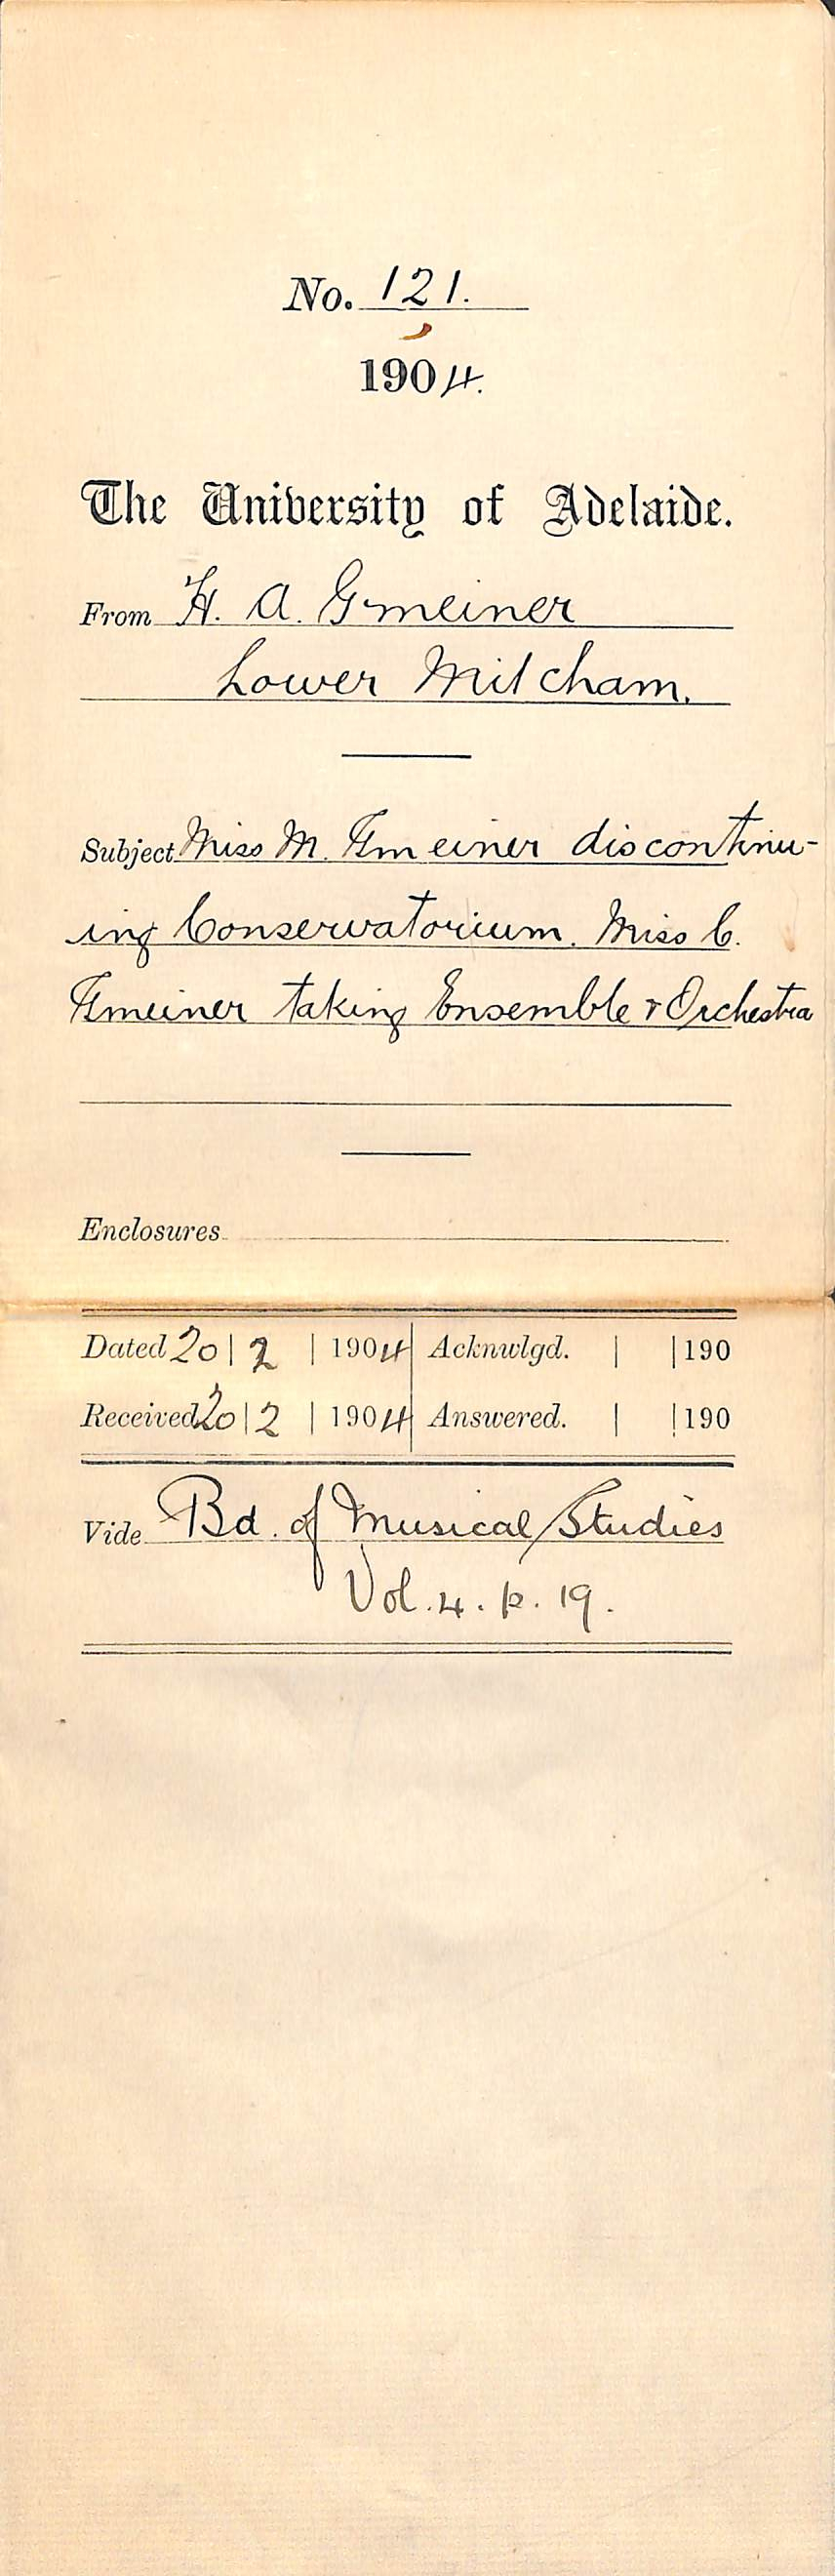 No. 121.
1904.
The University of Adelaide.
From H. A. Gmeiner
Lower Mitcham.
Subject Miss M. Gmeiner discontinu-
ing Conservatorium. Miss C.
Gmeiner taking Ensemble & Orchestra
Enclosures
Dated 20 | 2 | 1904 Acknwlgd. | | 190
Received 20 | 2 | 1904 Answered. | | 190
Vide Bd. of Musical Studies
Vol. 4. p. 19.